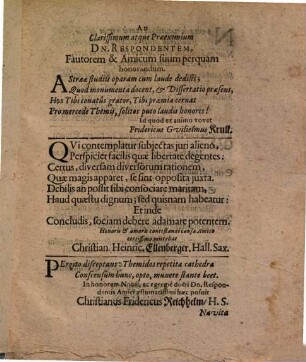 AD
Clarissimum atque Praeximium
DN. RESPONDENTEM,
Fautorem & Amicum suum perquam
honorandum.
AStraeæ studiis operam cum laude dedisti;
Quod monumenta docent, & Dissertatio præsens,
Hos Tibi conatus grator, Tibi præmia cernas
Pro mercede Themis, solitos puto laudis honores!
Id quod ex animo vovet
Fridericus Gvilielmus Krull.
QVi contemplatur subjectas juri alieno,
Perspiciet facilis quæ libertate degentes:
Certus, diversam diversorum rationem,
Quæ magis apparet, se sint opposita juxta.
Debilis an possit sibi consociare maritam,
Haud quæstu dignum; sed quisnam habeatur:
Et inde
Concludis, sociam debere adamare potentem.
Honoris & amoris contestandi causa Amico
Christian Heinric. Ellenberger, Hall. Sax.
PErgito disceptans: Themidos repetita cathedra
Conscensum hunc, opto, munere stante beet.
In honorem Nobil. ac egregie docti Dn. Respon-
dentis Amici æstumatissimi hæc posuit
Christianus Fridericus Reichhelm / H. S.
Næ vita